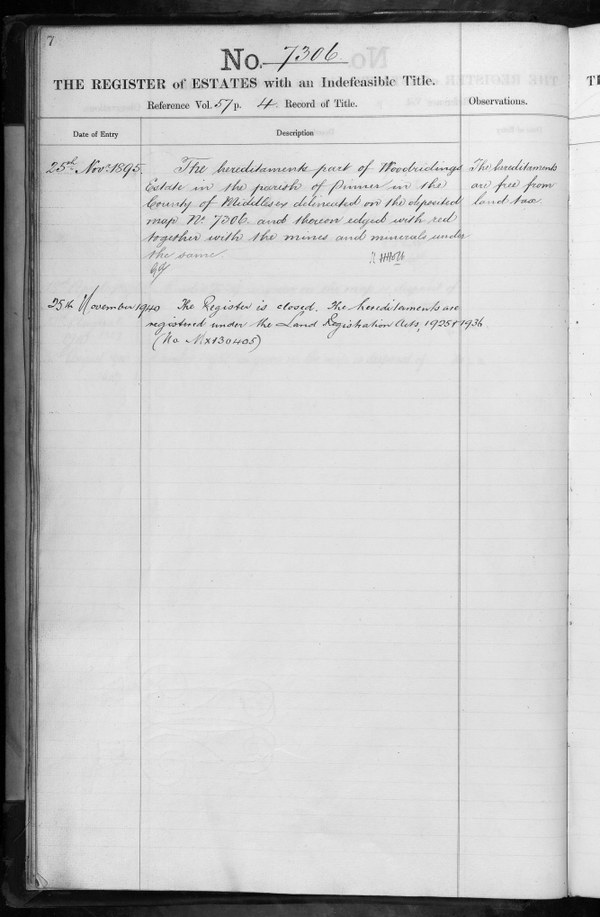 7
No. 7306
THE REGISTER of ESTATES with an Indefeasible Title.
Reference Vol. 57 p. 4. Record of Title.
Observations.
Date of Entry
Description
25th Novr. 1895.
The hereditaments part of Woodridings
Estate in the parish of Pinner in the
County of Middlesex delineated on the deposited
map No. 7306 and thereon edged with red
together with the mines and minerals under
the same
The hereditaments
are free from
land tax
25th November 1940
The Register is closed. The hereditaments are
registered under the Land Registration Acts, 1925 & 1936
(No. Mx130405)